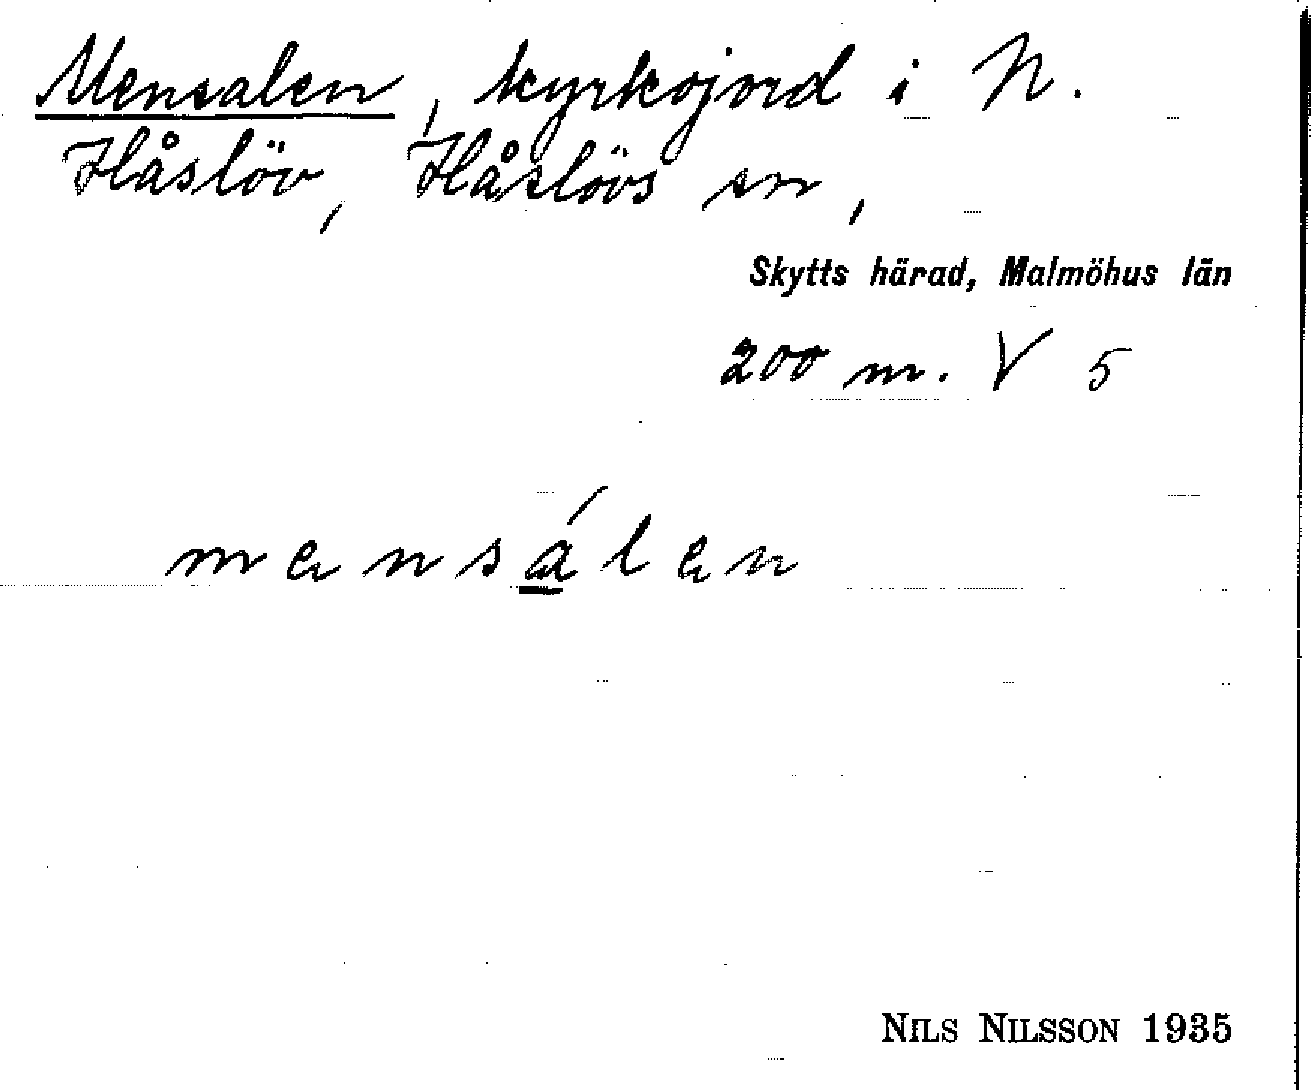 Mensalen, kyrkojord i N.
Håslöv, Håslövs sn,
Skytts härad, Malmöhus län
200 m. V 5
mensálen
NILS NILSSON 1935